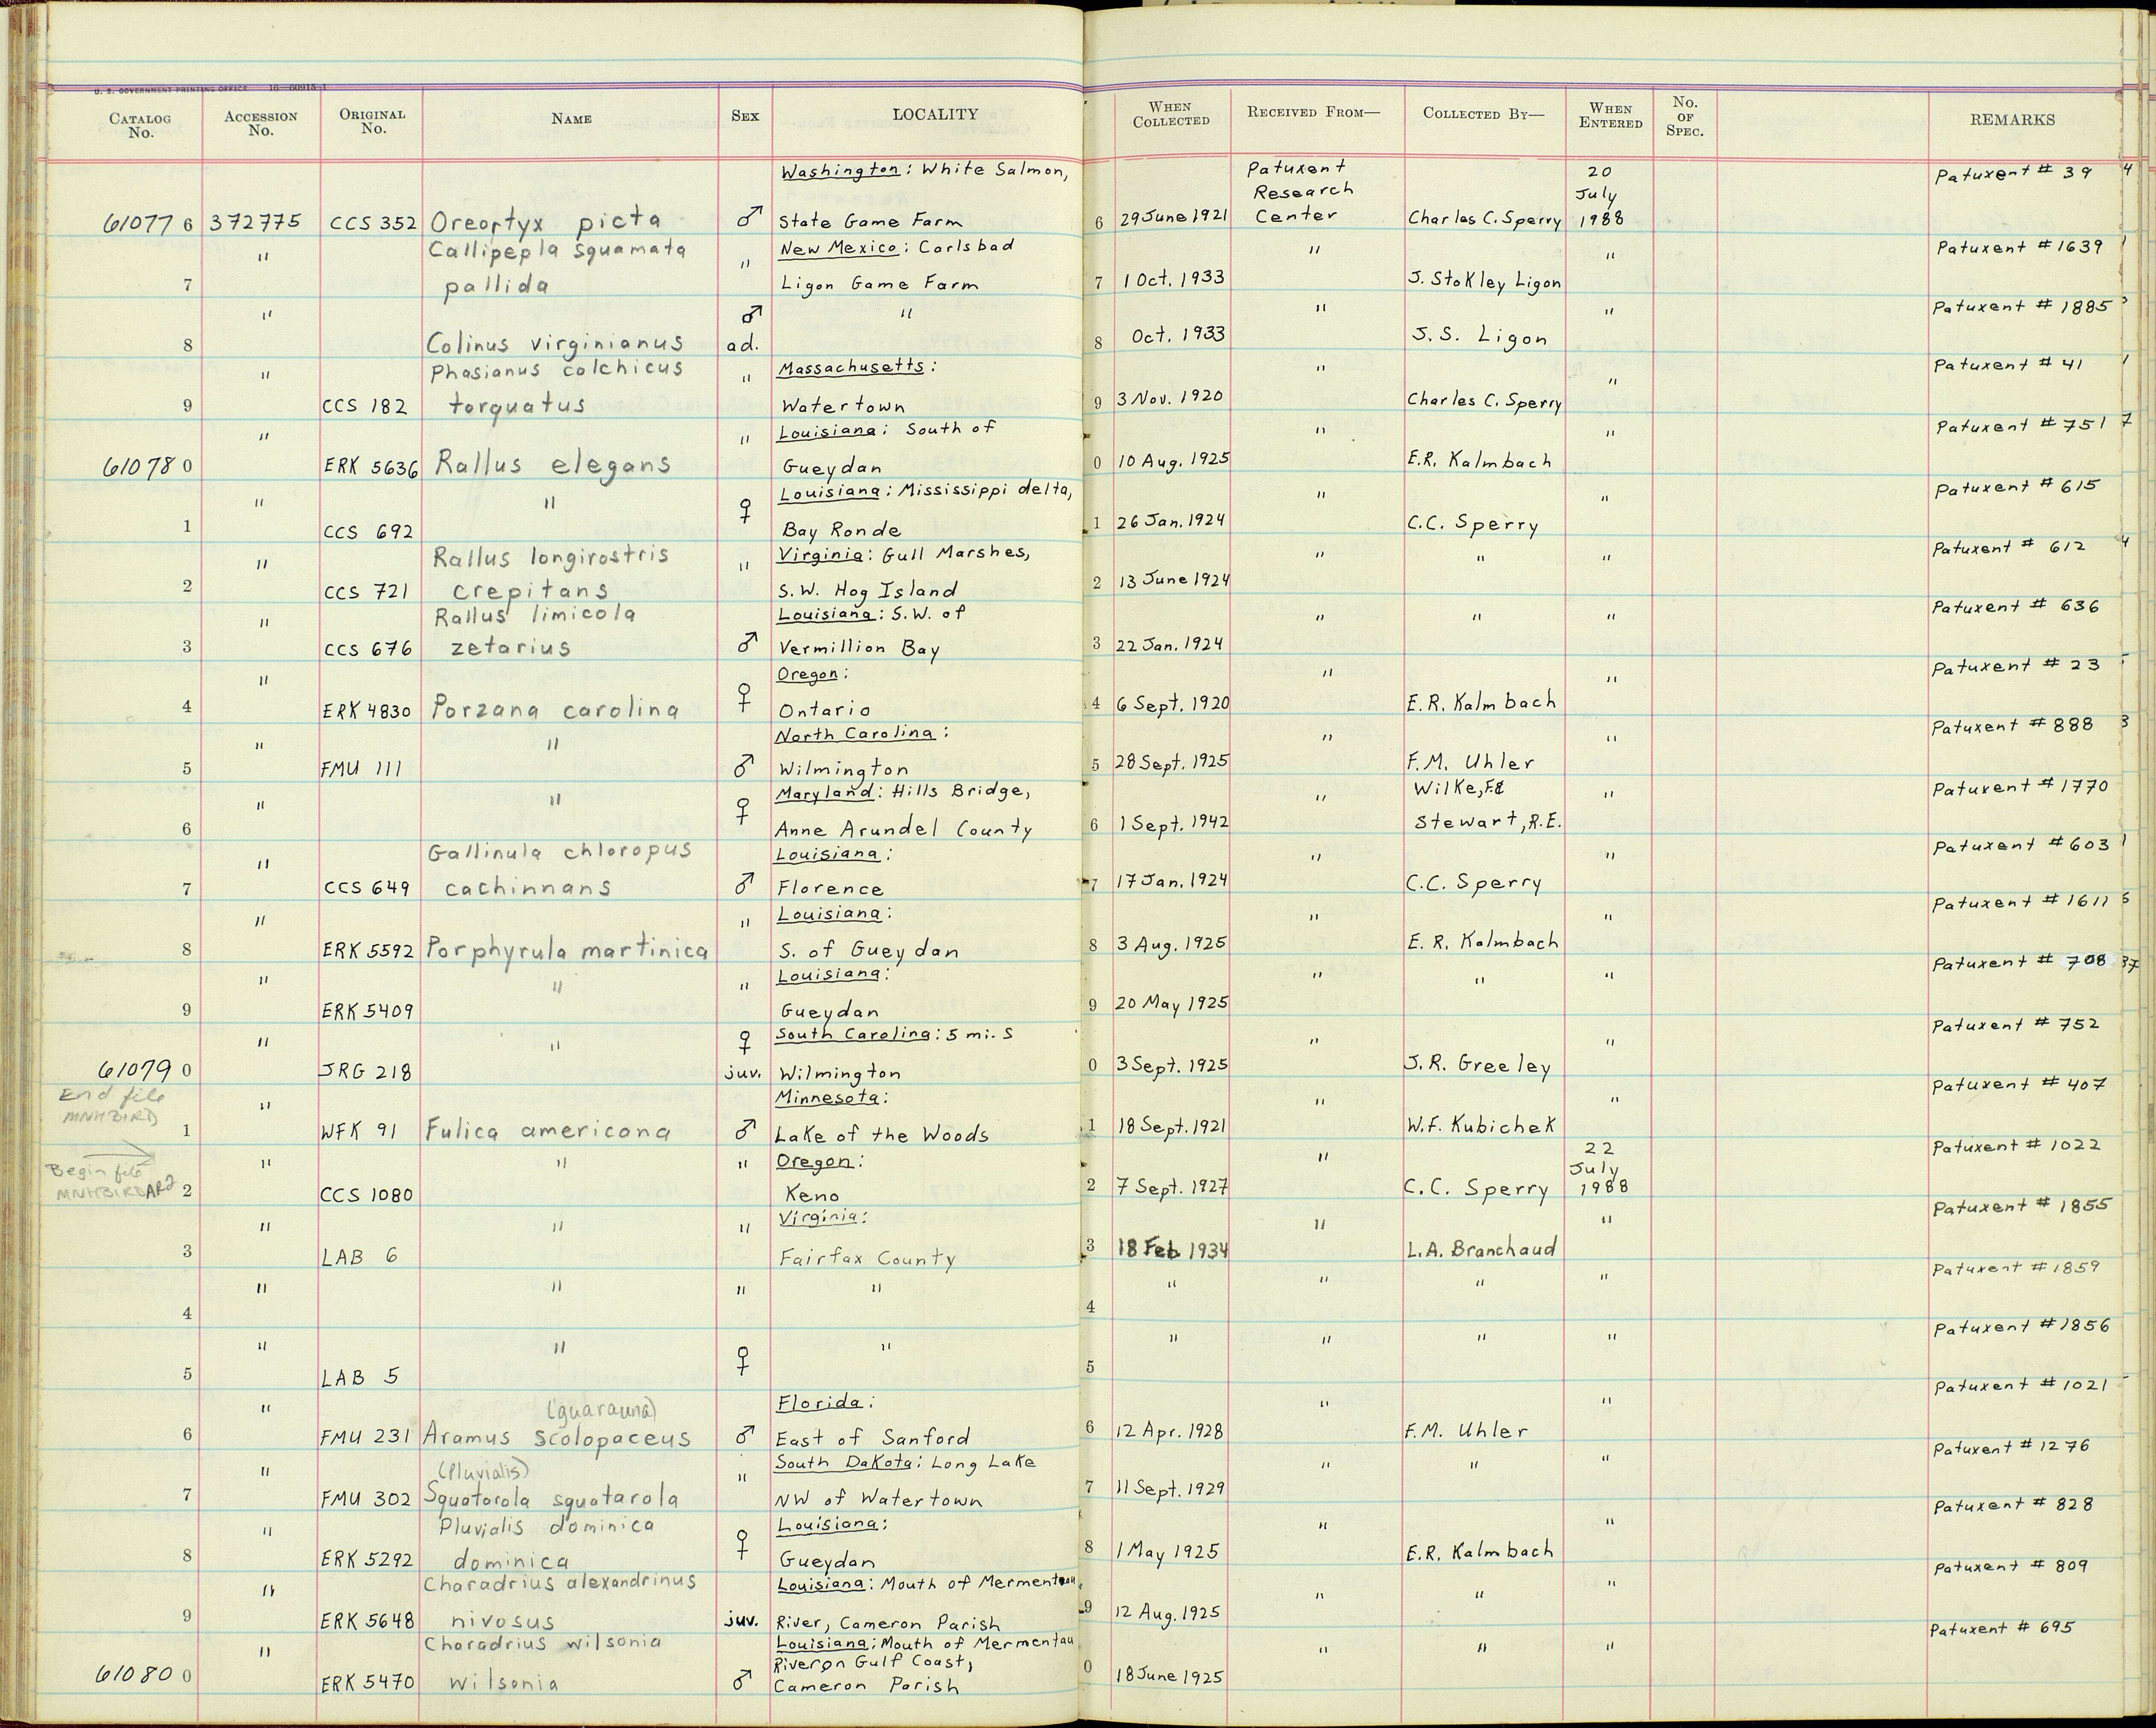 U. S. GOVERNMENT PRINTING OFFICE 16—60915-1
CATALOG No. ACCESSION No. ORIGINAL No. NAME SEX LOCALITY WHEN COLLECTED RECEIVED FROM— COLLECTED BY— WHEN ENTERED No. OF SPEC. REMARKS
Washington: White Salmon, Patuxent Research 20 July Patuxent # 39 4
61077 6 372775 CCS 352 Oreortyx picta ♂ State Game Farm 6 29 June 1921 Center Charles C. Sperry 1988
" Callipepla squamata " New Mexico: Carlsbad " " Patuxent # 1639
7 pallida Ligon Game Farm 7 1 Oct. 1933 J. Stokley Ligon
" ♂ " " " Patuxent # 1885
8 Colinus virginianus ad. 8 Oct. 1933 J.S. Ligon
" Phasianus colchicus " Massachusetts: " " Patuxent # 41
9 CCS 182 torquatus Watertown 9 3 Nov. 1920 Charles C. Sperry
" " Louisiana: South of " " Patuxent # 751 7
61078 0 ERK 5636 Rallus elegans Gueydan 0 10 Aug. 1925 E.R. Kalmbach
" " ♀ Louisiana: Mississippi delta, " " Patuxent # 615
1 CCS 692 Bay Ronde 1 26 Jan. 1924 C.C. Sperry
" Rallus longirostris " Virginia: Gull Marshes, " " " Patuxent # 612 4
2 CCS 721 crepitans S.W. Hog Island 2 13 June 1924
" Rallus limicola Louisiana: S.W. of " " " Patuxent # 636
3 CCS 676 zetarius ♂ Vermillion Bay 3 22 Jan. 1924
" Oregon: " " Patuxent # 23
4 ERK 4830 Porzana carolina ♀ Ontario 4 6 Sept. 1920 E.R. Kalmbach
" " North Carolina: " " Patuxent # 888 3
5 FMU 111 ♂ Wilmington 5 28 Sept. 1925 F.M. Uhler
" " ♀ Maryland: Hills Bridge, " Wilke, F.& " Patuxent # 1770
6 Anne Arundel County 6 1 Sept. 1942 Stewart, R.E.
" Gallinula chloropus Louisiana: " " Patuxent # 603
7 CCS 649 cachinnans ♂ Florence 7 17 Jan. 1924 C.C. Sperry
" " Louisiana: " " Patuxent # 1611 5
8 ERK 5592 Porphyrula martinica S. of Gueydan 8 3 Aug. 1925 E.R. Kalmbach
" " " Louisiana: " " " Patuxent # 708 37
9 ERK 5409 Gueydan 9 20 May 1925
" " ♀ South Carolina: 5 mi. S " " Patuxent # 752
61079 0 JRG 218 juv. Wilmington 0 3 Sept. 1925 J.R. Greeley
End file MNHBIRD " Minnesota: " " Patuxent # 407
1 WFK 91 Fulica americana ♂ Lake of the Woods 1 18 Sept. 1921 W.F. Kubichek
Begin file " " " Oregon: " 22 July Patuxent # 1022
MNHBIRDAR2 2 CCS 1080 Keno 2 7 Sept. 1927 C.C. Sperry 1988
" " " Virginia: " " Patuxent # 1855
3 LAB 6 Fairfax County 3 18 Feb 1934 L.A. Branchaud
" " " " " " " " Patuxent # 1859
4 4
" " ♀ " " " " " Patuxent # 1856
5 LAB 5 5
" (guarauna) Florida: " " Patuxent # 1021
6 FMU 231 Aramus scolopaceus ♂ East of Sanford 6 12 Apr. 1928 F.M. Uhler
" (Pluvialis) " South Dakota: Long Lake " " " Patuxent # 1276
7 FMU 302 Squatarola squatarola NW of Watertown 7 11 Sept. 1929
" Pluvialis dominica ♀ Louisiana: " " Patuxent # 828
8 ERK 5292 dominica Gueydan 8 1 May 1925 E.R. Kalmbach
" Charadrius alexandrinus Louisiana: Mouth of Mermentau " " " Patuxent # 809
9 ERK 5648 nivosus juv. River, Cameron Parish 9 12 Aug. 1925
" Charadrius wilsonia Louisiana: Mouth of Mermentau " " " Patuxent # 695
River on Gulf Coast,
61080 0 ERK 5470 wilsonia ♂ Cameron Parish 0 18 June 1925